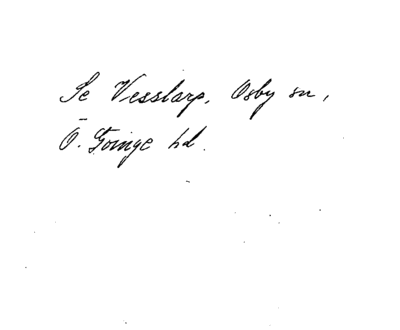 Se Vesslarp, Osby sn,
Ö. Göinge hd.